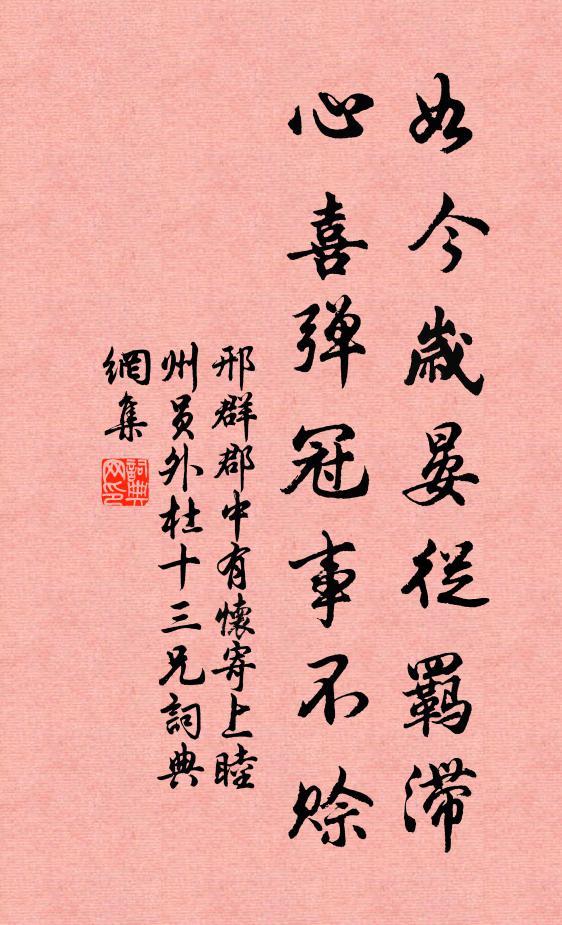 如今歲晏從羈滯
心喜彈冠事不賒
邢群郡中有懷寄上睦
州員外杜十三兄詞典
網集
詞典網印